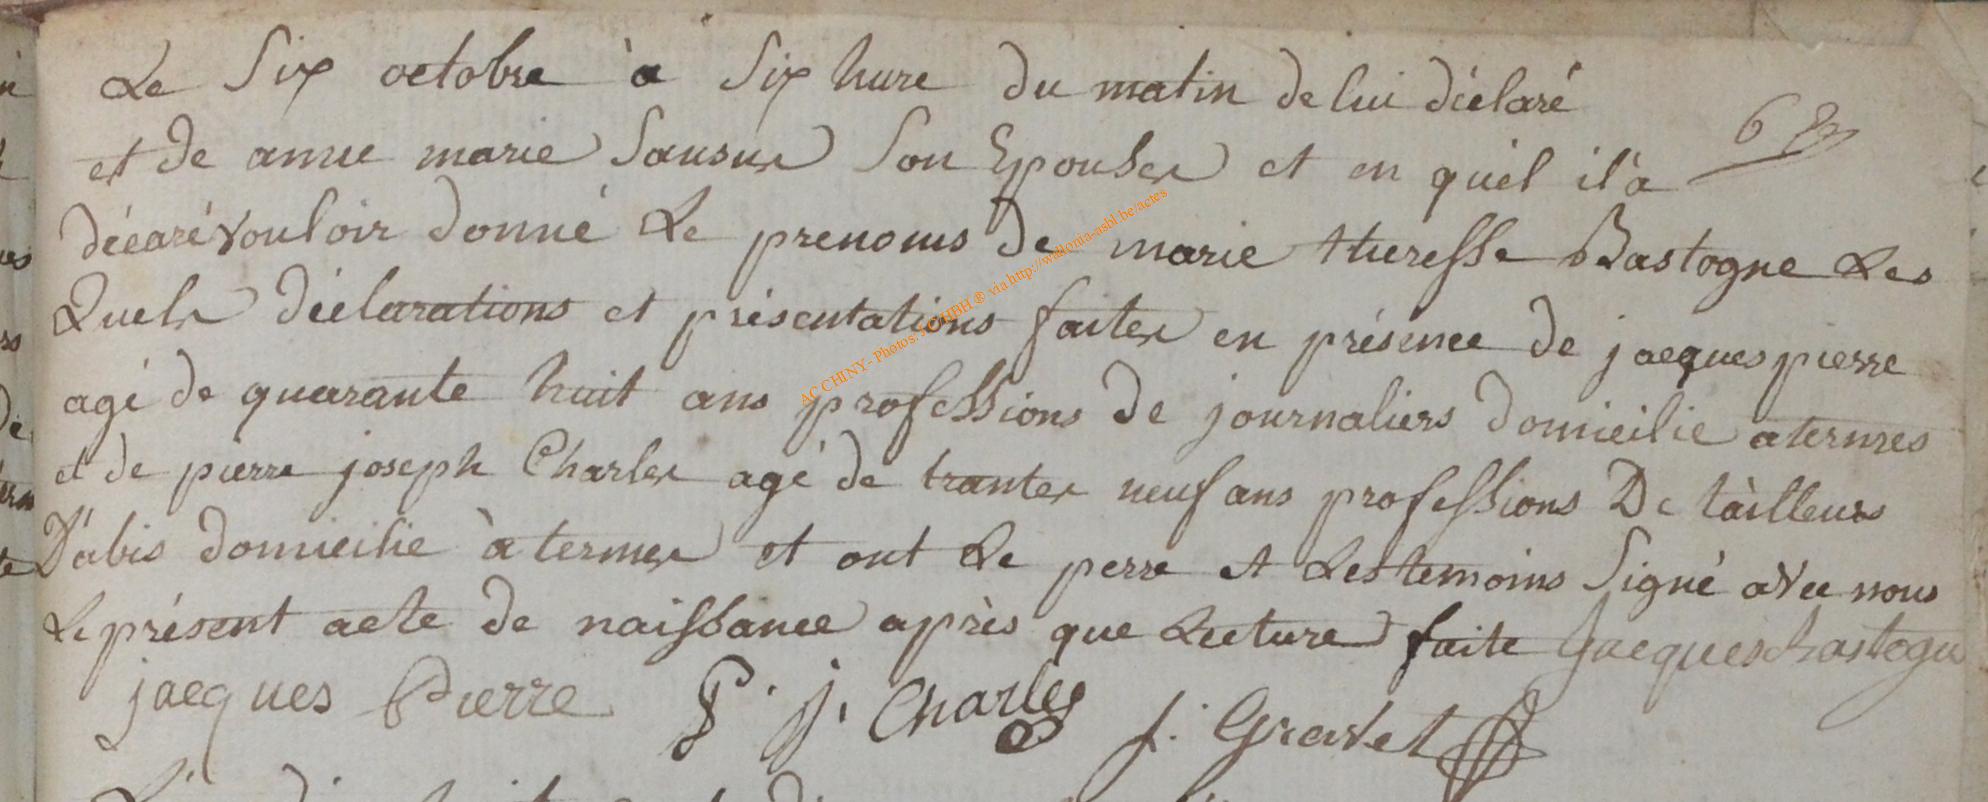 Le Six octobre à Six hure du matin de lui déclaré
et de anne marie Sausus Son Epouse et en quel il à
décaré vouloir donné Le prenoms de marie theresse Bastogne Les
Quels déclarations et présentations faites en présence de jacques pierre
agé de quarante huit ans professions de journaliers domicilie a termes
et de pierre joseph Charles agé de trantes neuf ans professions De tàilleurs
D'abis domicilie à termes et ont Le perre et Les temoins Signé avec nous
Le présent acte de naissance après que Lecture faite Jacques bastogne
jacques Pierre P. j. Charles j. Gravet
AC CHINY - Photos: ICGHBH ® via http://wallonia-asbl.be/actes